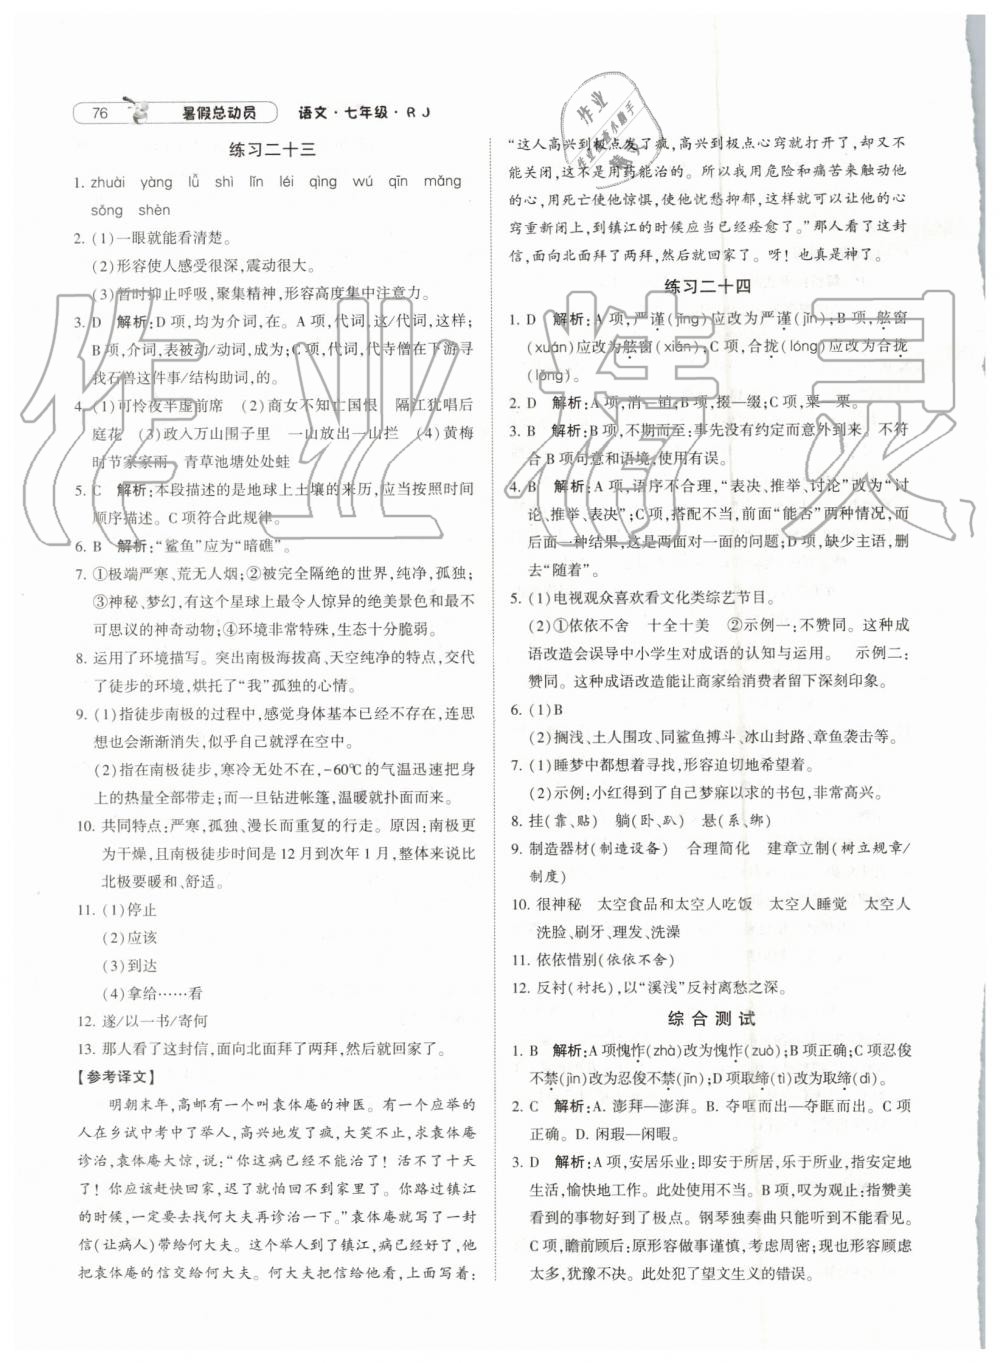 76 暑假总动员 语文·七年级·RJ
练习二十三
1. zhuài yàng lǜ shì lǐn léi qìng wú qīn mǎng
sǒng shèn
2. (1)一眼就能看清楚。
(2)形容使人感受很深,震动很大。
(3)暂时抑止呼吸,聚集精神,形容高度集中注意力。
3. D 解析:D项,均为介词,在。A项,代词,这/代词,这样;
B项,介词,表被动/动词,成为;C项,代词,代寺僧在下游寻
找石兽这件事/结构助词,的。
4. (1)可怜夜半虚前席 (2)商女不知亡国恨 隔江犹唱后
庭花 (3)政入万山围子里 一山放出一山拦 (4)黄梅
时节家家雨 青草池塘处处蛙
5. C 解析:本段描述的是地球上土壤的来历,应当按照时间
顺序描述。C项符合此规律。
6. B 解析:“鲨鱼”应为“暗礁”。
7. ①极端严寒、荒无人烟;②被完全隔绝的世界,纯净,孤独;
③神秘、梦幻,有这个星球上最令人惊异的绝美景色和最不
可思议的神奇动物;④环境非常特殊,生态十分脆弱。
8. 运用了环境描写。突出南极海拔高、天空纯净的特点,交代
了徒步的环境,烘托了“我”孤独的心情。
9. (1)指徒步南极的过程中,感觉身体基本已经不存在,连思
想也会渐渐消失,似乎自己就浮在空中。
(2)指在南极徒步,寒冷无处不在,-60℃的气温迅速把身
上的热量全部带走;而一旦钻进帐篷,温暖就扑面而来。
10. 共同特点:严寒,孤独、漫长而重复的行走。原因:南极更
为干燥,且南极徒步时间是12月到次年1月,整体来说比
北极要暖和、舒适。
11. (1)停止
(2)应该
(3)到达
(4)拿给……看
12. 遂/以一书/寄何
13. 那人看了这封信,面向北面拜了两拜,然后就回家了。
【参考译文】
明朝末年,高邮有一个叫袁体庵的神医。有一个应举的
人在乡试中考中了举人,高兴地发了疯,大笑不止,求袁体庵
诊治,袁体庵大惊,说:“你这病已经不能治了!活不了十天
了!你应该赶快回家,迟了就怕回不到家里了。你路过镇江
的时候,一定要去找何大夫再诊治一下。”袁体庵写了一封
信(让病人)带给何大夫。这个人到了镇江,病已经好了,他
把袁体庵的信交给何大夫。何大夫把信给他看,上面写着:
“这人高兴到极点发了疯,高兴到极点心窍就打开了,却不
能关闭,这不是用药能治的。所以我用危险和痛苦来触动他
的心,用死亡使他惊惧,使他忧愁抑郁,这样就可以让他的心
窍重新闭上,到镇江的时候应当已经痊愈了。”那人看了这封
信,面向北面拜了两拜,然后就回家了。呀!也真是神了。
练习二十四
1. D 解析:A项,严谨(jǐng)应改为严谨(jǐn);B项,舷窗
(xuán)应改为舷窗(xián);C项,合拢(lóng)应改为合拢
(lǒng)。
2. D 解析:A项,消—销;B项,掇—缀;C项,粟—栗。
3. B 解析:B项,不期而至:事先没有约定而意外到来。不符
合B项句意和语境,使用有误。
4. B 解析:A项,语序不合理,“表决、推举、讨论”改为“讨
论、推举、表决”;C项,搭配不当,前面“能否”两种情况,而
后面一种结果,这是两面对一面的问题;D项,缺少主语,删
去“随着”。
5. (1)电视观众喜欢看文化类综艺节目。
(2)①依依不舍 十全十美 ②示例一:不赞同。这种成
语改造会误导中小学生对成语的认知与运用。 示例二:
赞同。这种成语改造能让商家给消费者留下深刻印象。
6. (1)B
(2)搁浅、土人围攻、同鲨鱼搏斗、冰山封路、章鱼袭击等。
7. (1)睡梦中都想着寻找,形容迫切地希望着。
(2)示例:小红得到了自己梦寐以求的书包,非常高兴。
8. 挂(靠、贴) 躺(卧、趴) 悬(系、绑)
9. 制造器材(制造设备) 合理简化 建章立制(树立规章/
制度)
10. 很神秘 太空食品和太空人吃饭 太空人睡觉 太空人
洗脸、刷牙、理发、洗澡
11. 依依惜别(依依不舍)
12. 反衬(衬托),以“溪浅”反衬离愁之深。
综合测试
1. B 解析:A项愧怍(zhà)改为愧怍(zuò);B项正确;C项忍俊
不禁(jìn)改为忍俊不禁(jīn);D项取缔(tì)改为取缔(dì)。
2. C 解析:A. 澎拜—澎湃。B. 夺哐而出—夺眶而出。C项
正确。D. 闲瑕—闲暇。
3. D 解析:A项,安居乐业:即安于所居,乐于所业,指安定地
生活,愉快地工作。此处使用不当。B项,叹为观止:指赞美
看到的事物好到了极点。钢琴独奏曲只能听到不能看到。
C项,瞻前顾后:原形容做事谨慎,考虑周密;现也形容顾虑
太多,犹豫不决。此处犯了望文生义的错误。
作业精灵